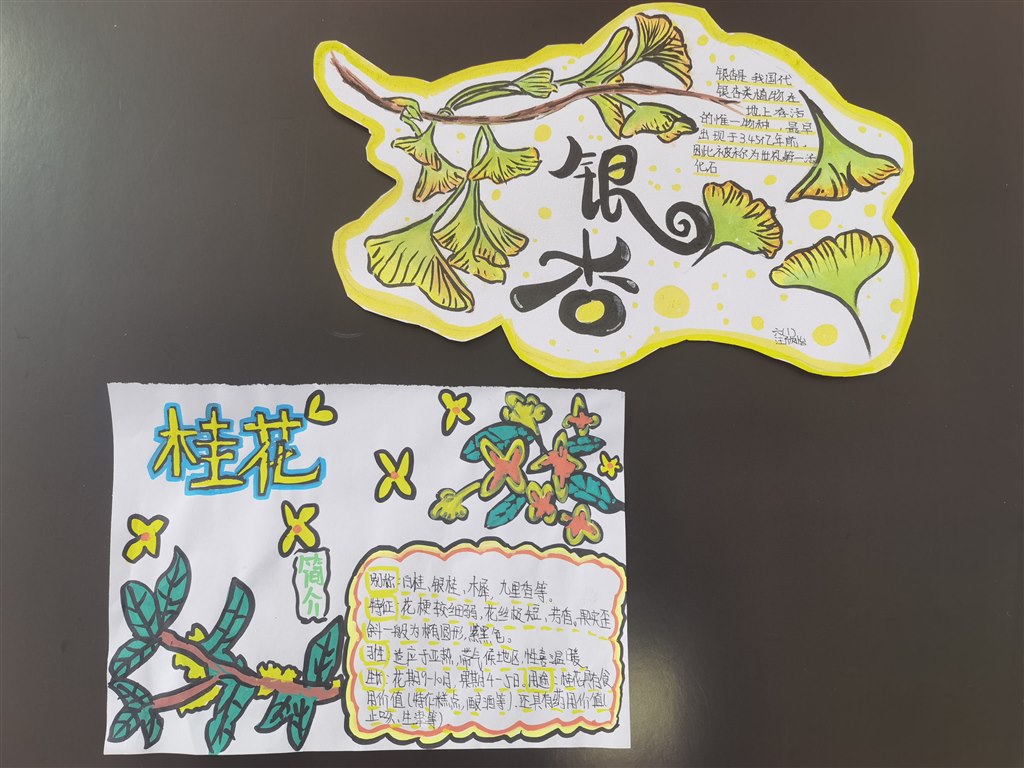 银杏是我国代
银杏类植物在
地上存活
的惟一物种,最早
出现于3.45亿年前,
因此被称为世界第一活
化石
银
杏
桂花
简介
别称:月桂、银桂、木犀、九里香等。
特征:花梗较细弱,花丝极短,芳香。果实歪
斜一般为椭圆形,紫黑色。
习性:适应于亚热带气候地区,性喜温暖
花期9-10月,果期4-5日。用途:桂花
用价值(特作糕点,酿酒等)。还具有药用价值(
止咳,生津等)